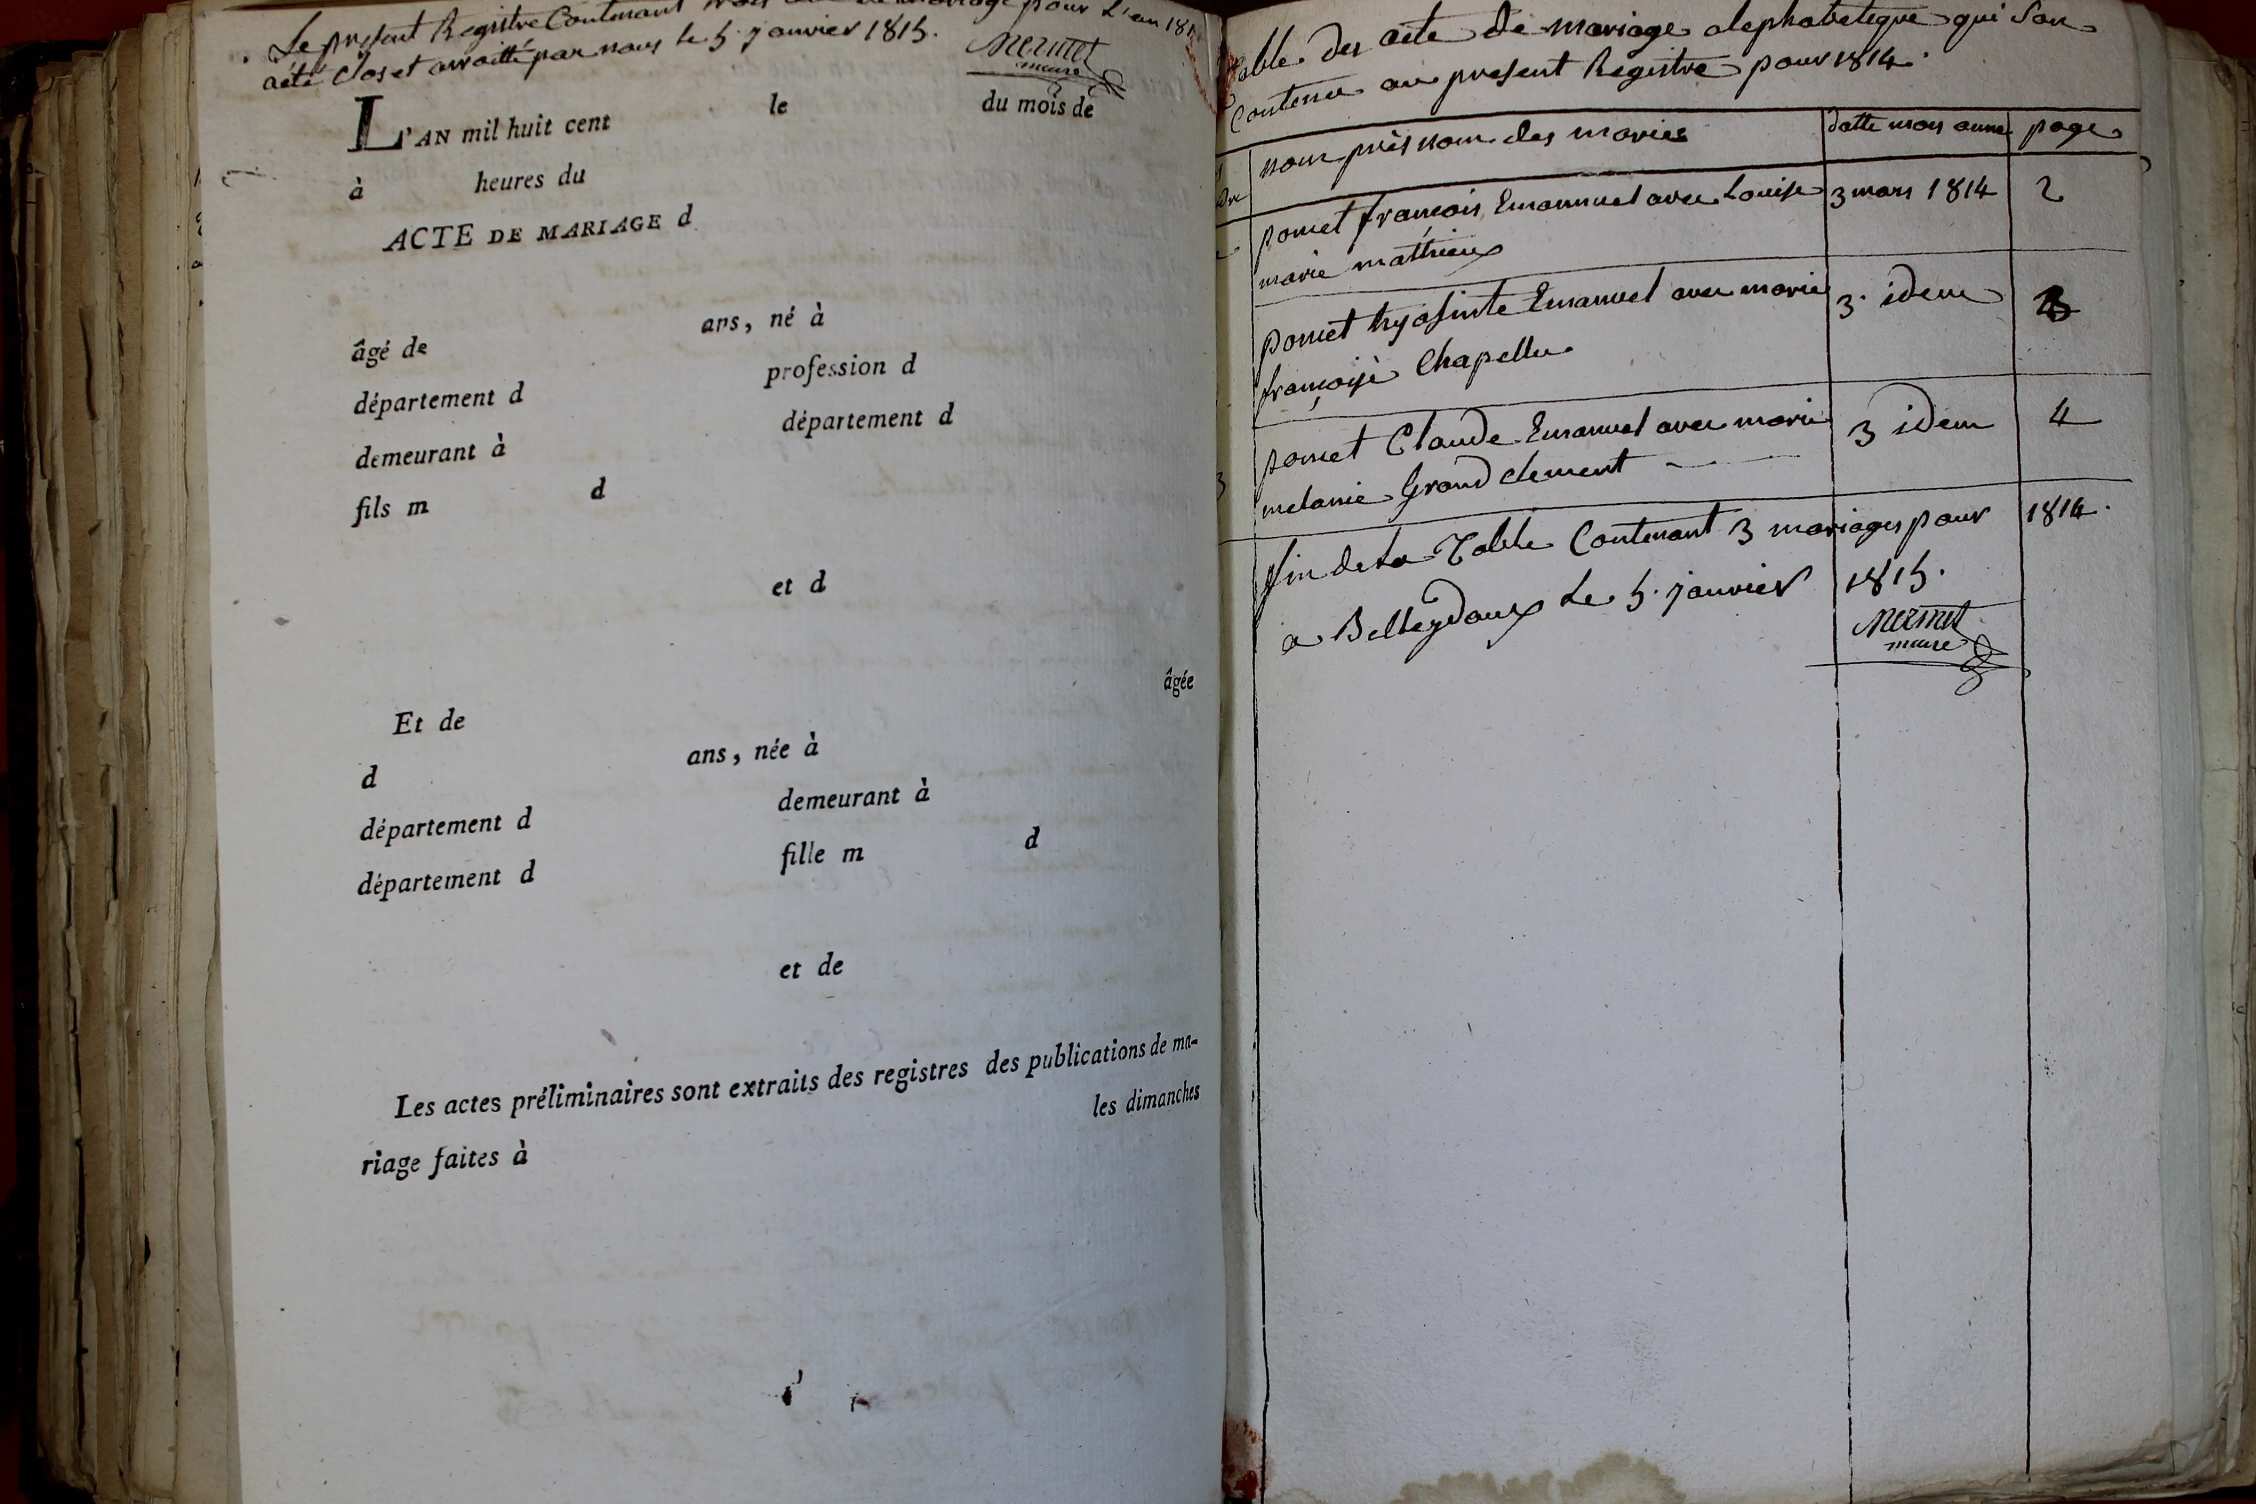 Le present Registre Contenant trois acte de mariage pour L'an 181
aété Clos et arraitté par nous le 5. janvier 1815.
Mermet
maire
L'AN mil huit cent le du mois de
à heures du
ACTE DE MARIAGE d
âgé de ans, né à
département d profession d
demeurant à département d
fils m d
et d
Et de âgée
d ans, née à
département d demeurant à
département d fille m d
et de
Les actes préliminaires sont extraits des registres des publications de ma-
riage faites à les dimanches
table des acte de mariage alephabetique qui Son
Contenu au present Registre pour 1814.
nom prés nom des mariés datte mois anné page
pomet françois Emannuel avec Louise 3 mars 1814 2
marie mathieux
pomet hyasinte Emanuel avec marie 3. idem 3
françoise Chapellu
pomet Claude Emanuel avec marie 3 idem 4
melanie Grand clement
fin de la Table Contenant 3 mariages pour 1814.
a Belleydoux Le 5. janvier 1815.
Mermet
maire